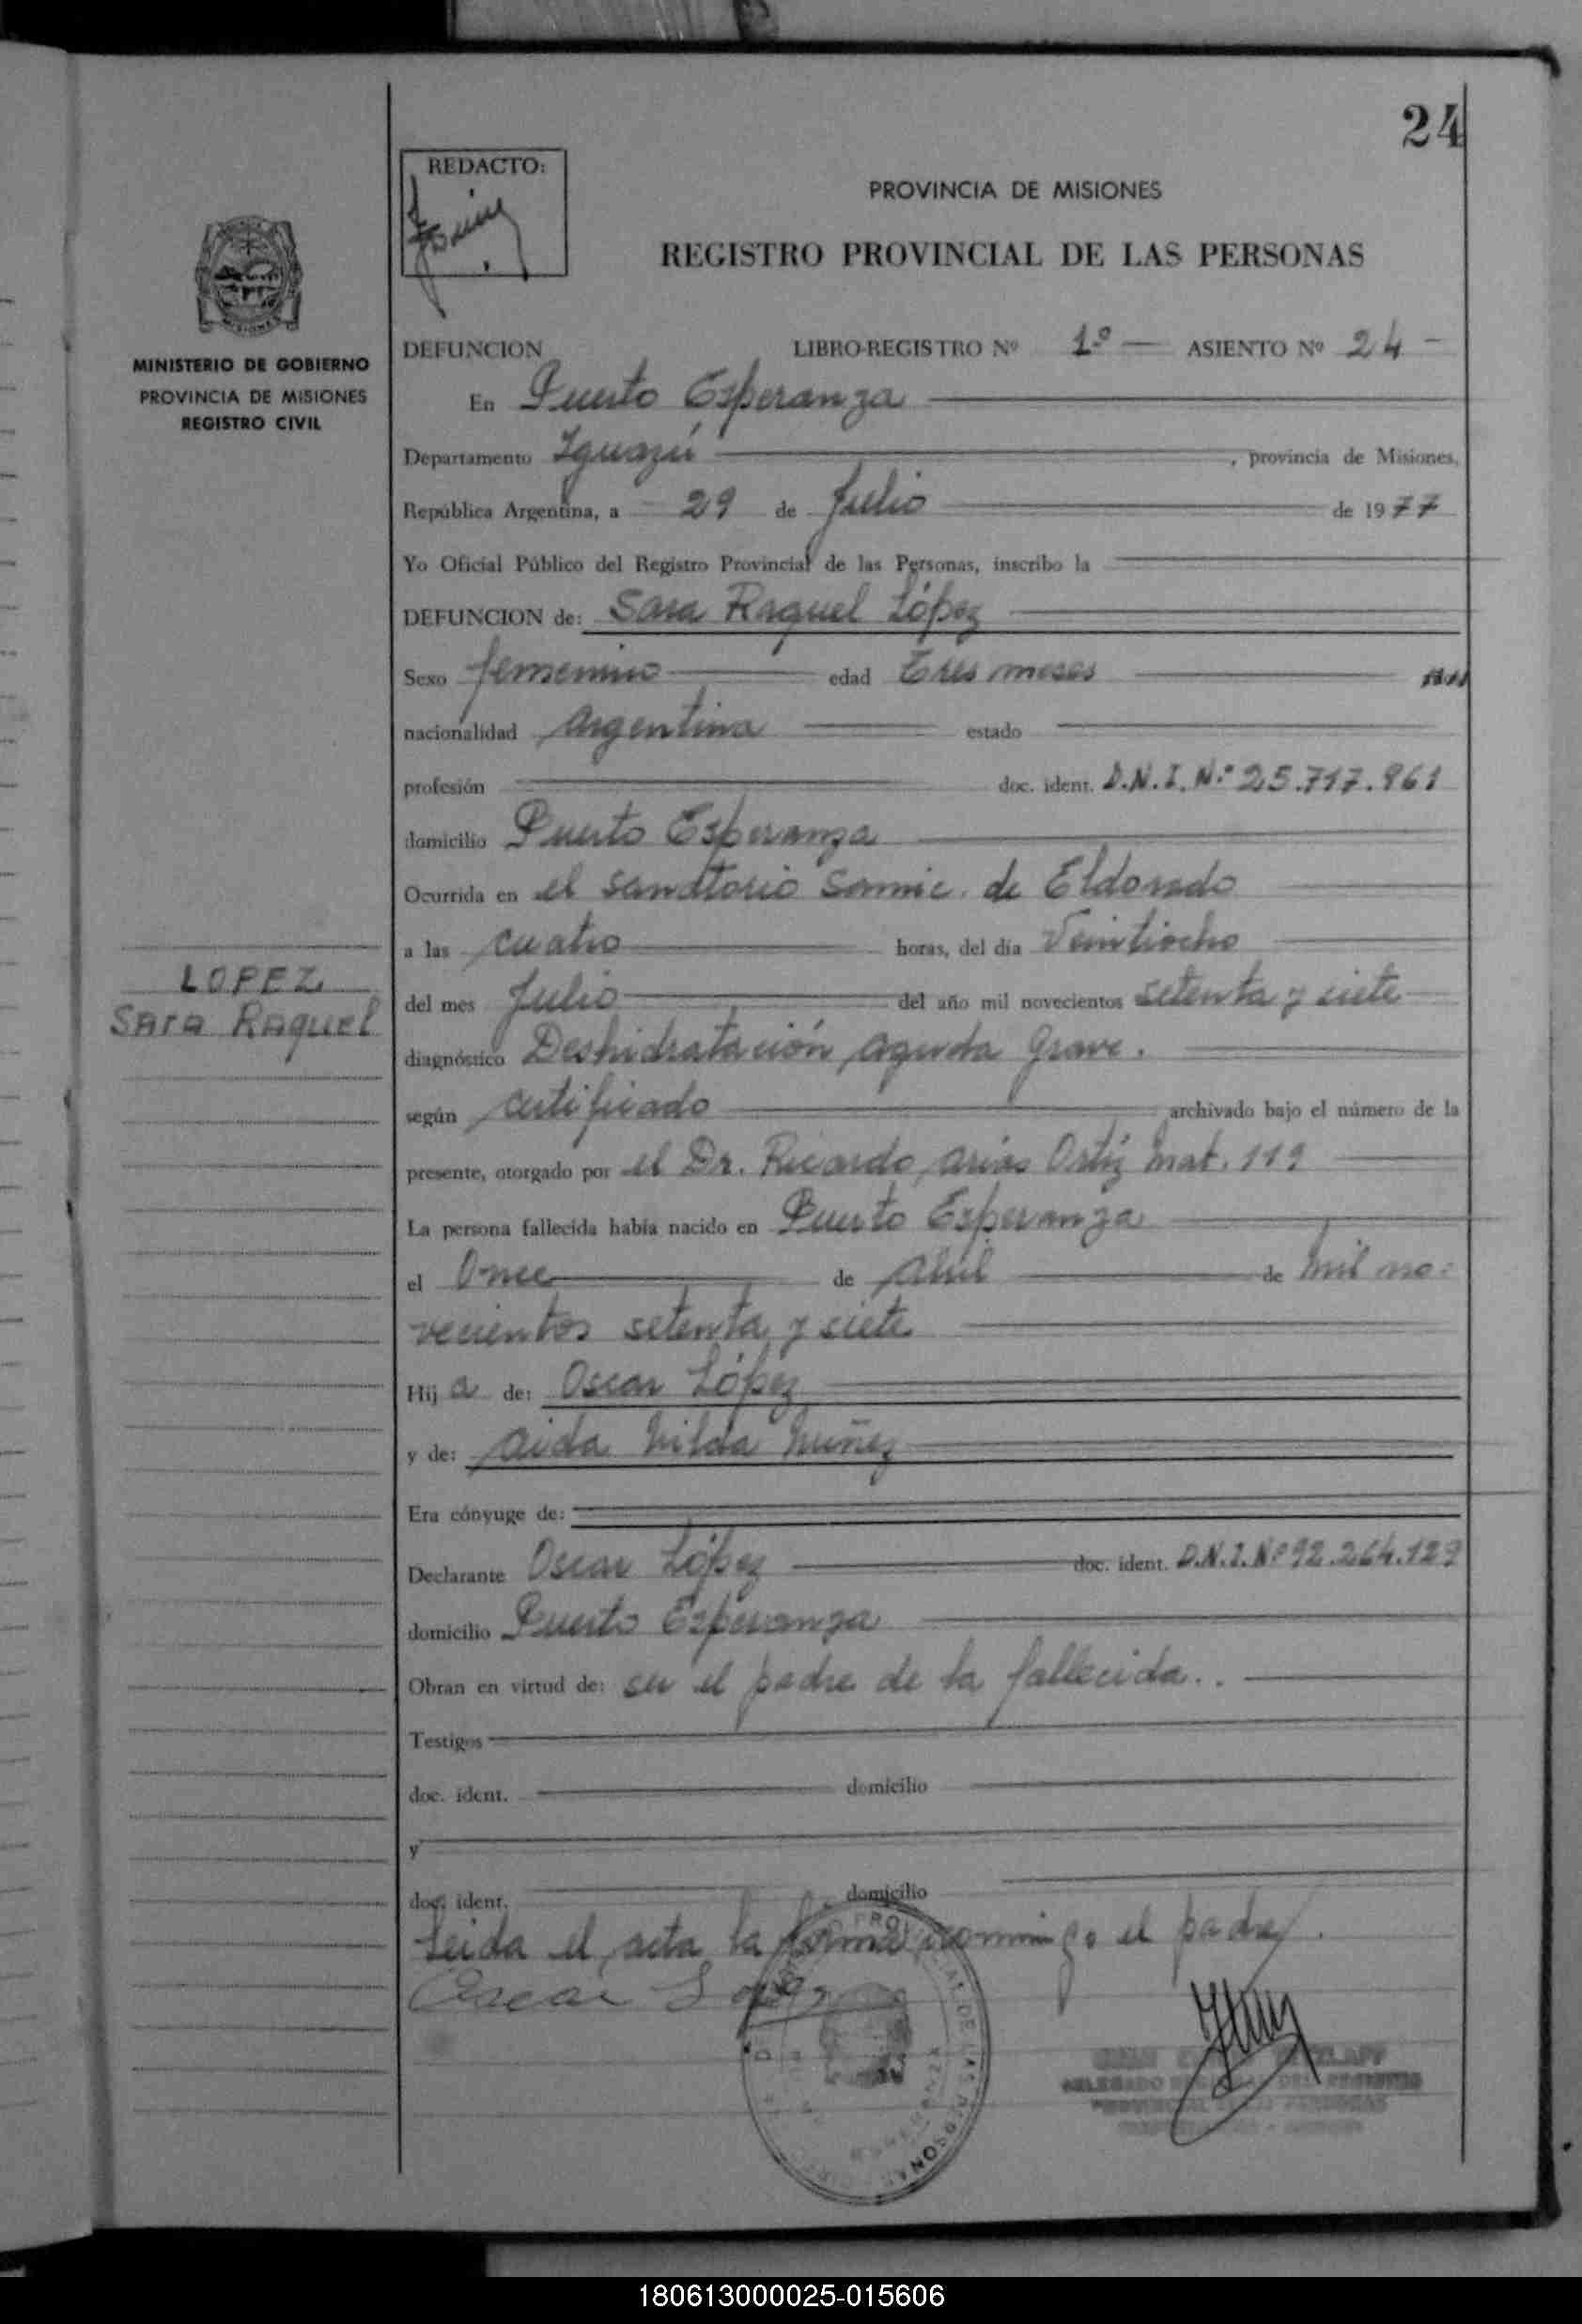 24
REDACTO:
PROVINCIA DE MISIONES
REGISTRO PROVINCIAL DE LAS PERSONAS
MINISTERIO DE GOBIERNO
PROVINCIA DE MISIONES
REGISTRO CIVIL
DEFUNCION LIBRO-REGISTRO Nº 1º — ASIENTO Nº 24 -
En Puerto Esperanza
Departamento Iguazú , provincia de Misiones,
República Argentina, a 29 de Julio de 1977
Yo Oficial Público del Registro Provincial de las Personas, inscribo la
DEFUNCION de: Sara Raquel López
Sexo femenino edad tres meses
nacionalidad argentina estado
profesión doc. ident. D.N.I. Nº 25.717.961
domicilio Puerto Esperanza
Ocurrida en el sanatorio Samic. de Eldorado
a las cuatro horas, del día Veintiocho
LOPEZ
Sara Raquel
del mes Julio del año mil novecientos setenta y siete
diagnóstico Deshidratación aguda grave.
según certificado archivado bajo el número de la
presente, otorgado por el Dr. Ricardo Arias Ortíz Mat. 119
La persona fallecida había nacido en Puerto Esperanza
el Once de Abril de mil no-
vecientos setenta y siete
Hij a de: Oscar López
y de: Aida Nilda Nuñez
Era cónyuge de:
Declarante Oscar López doc. ident. D.N.I. Nº 92.264.129
domicilio Puerto Esperanza
Obran en virtud de: ser el padre de la fallecida..
Testigos
doc. ident. domicilio
y
doc. ident. domicilio
Leida el acta la firma conmigo el padre.
Oscar Lopez
180613000025-015606